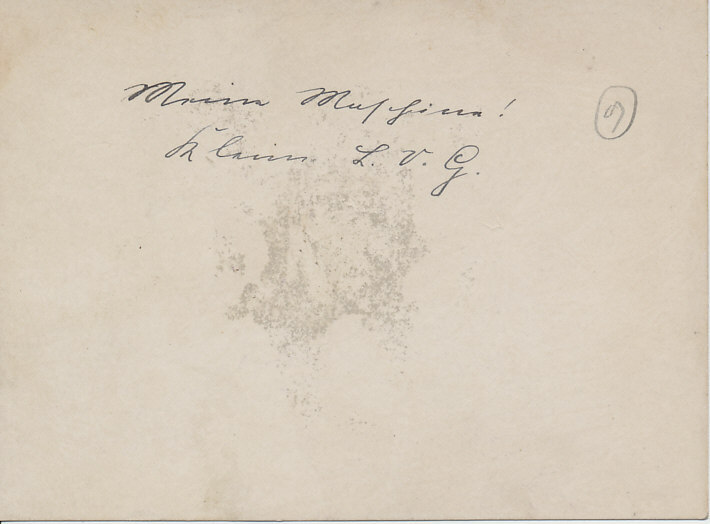 Meine Maschine!
Kleine L.V.G.